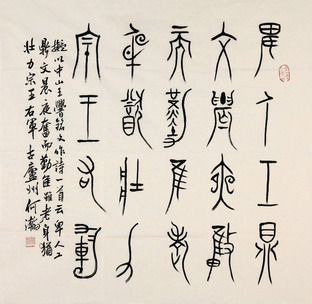 卑人工鼎
文晨夜奮
而勤雖老
身猶壯力
宗王右軍
擬以中山王銘文作詩一首云卑人工
鼎文晨夜奮而勤雖老身猶
壯力宗王右軍 古廬州何瀚